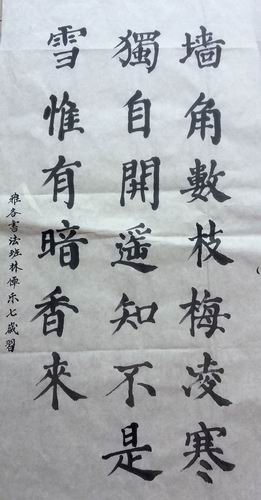 墙角數枝梅凌寒
獨自開遥知不是
雪惟有暗香來
雅各書法班林倳乐七歲習